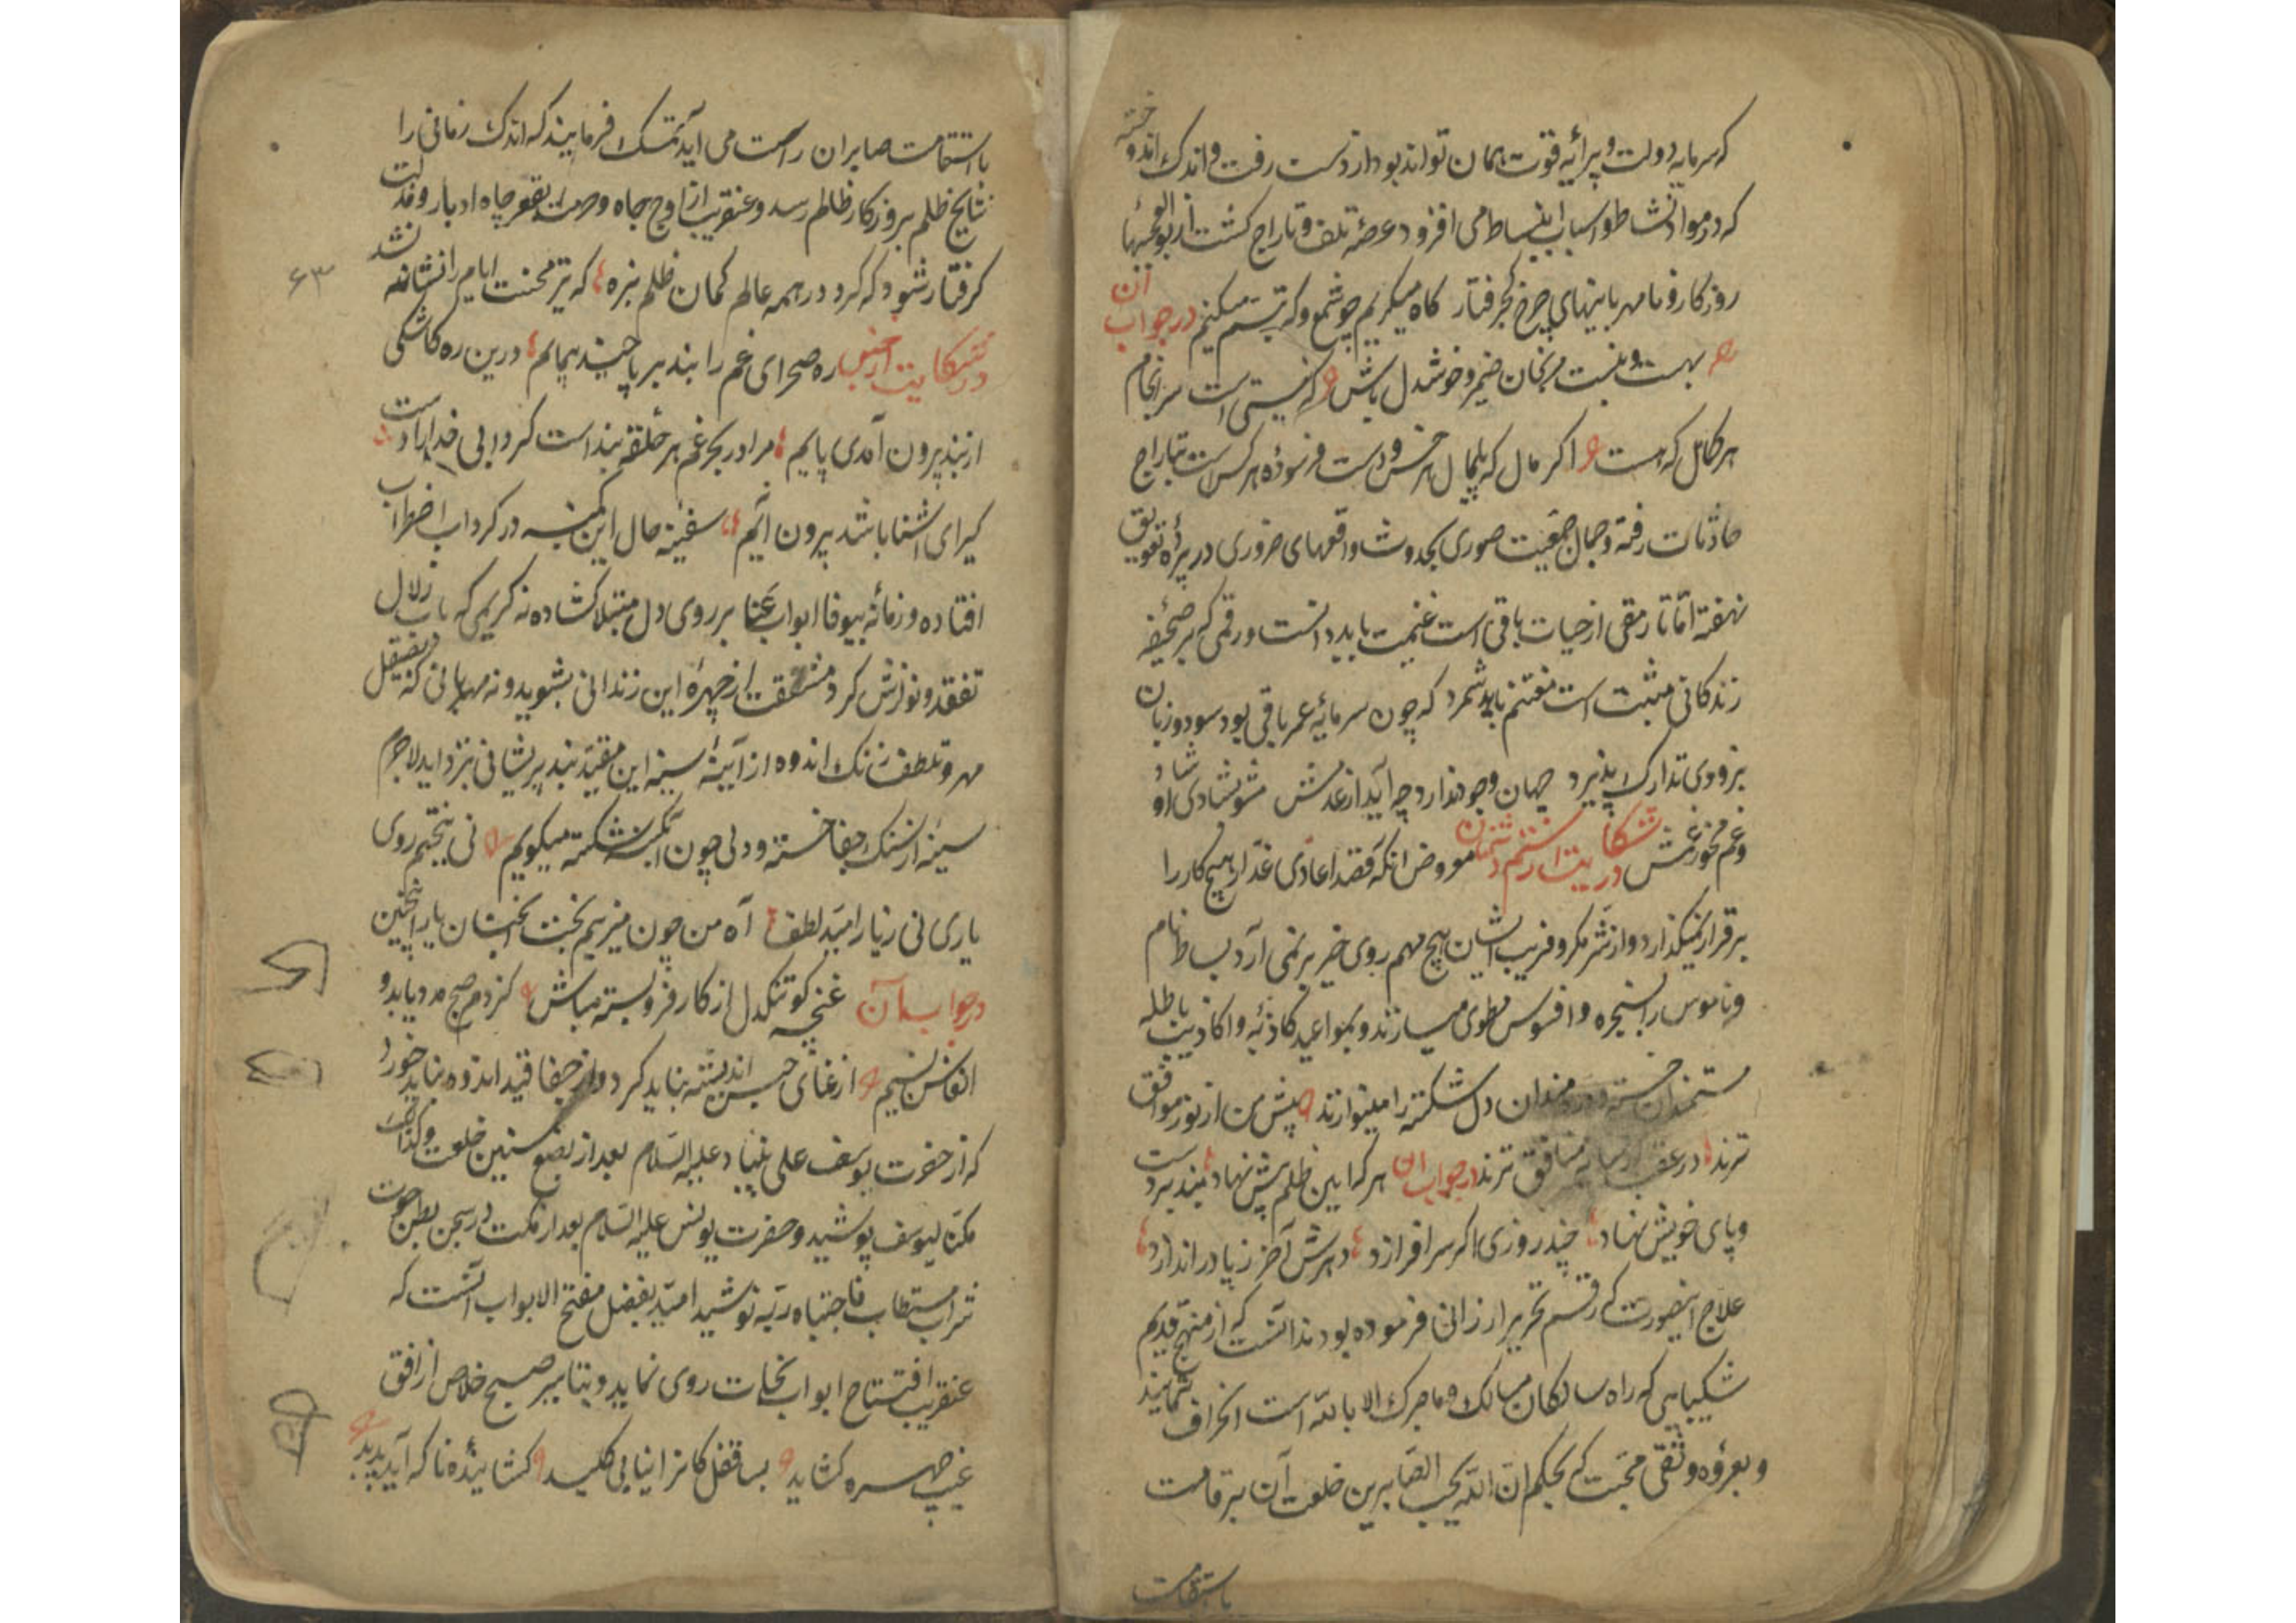 که سرمایه دولت و پیرائه فتوت همان تواند بود از دست رفت و اندک اندوخته
که در مواد نشاط و اسباب انبساط می افزود عرضه تلف و تاراج کشت از بوالعجبیها
روزکار و نامهربانیهای چرخ کجرفتار کاه میکریم چو شمع و که تبسم میکنم در جواب آن
بهست و نیست مرنجان ضمیر و خوشدل باش که نیستی است سرانجام
هر کمال که هست اکر مال که پایمال هر خس و فرسوده هر کس ست بتاراج
حادثات رفته و جمال جمعیت صوری بحدوث واقعهای ضروری در پرده تعویق
نهفته اما تا رمقی از حیات باقی است غنیمت باید دانست و رقمی که بر صحیفه
زندکانی مثبت است مغتنم باید شمرد که چون سرمایه عمر باقی بود سود و زیان
بزودی تدارک پذیرد جهان وجود ندارد چه آید از عدمش مشو بشادی او شاد
و غم مخور ز غمش در شکایت از ستم دشمنان معروض انکه قصد اعادی غدار هیچ کار را
برقرار نمیکذارد و از شر مکر و فریب ایشان هیچ مهم روی خیر بر نمی آرد بساط نام
و ناموس را بسخره و افسوس مطوی میسازند و بمواعید کاذبه و اکاذیب باطله
مستمندان خسته و دردمندان دل شکسته را مینوازند پیش من از نور موافق
ترند در عقب از سایه منافق ترند در جواب آن هر که این ظلم پیش نهاد بند بر دست
و پای خویش نهاد چند روزی اکر سر افرازد دهرش آخر ز پا در اندازد
علاج اینصورت که رقم تحریر ارزانی فرموده بودند آنست که از منهج قدیم
شکیبایی که راه سالکان مسالک و ما صبرک الا بالله است انحراف ننمایند
و بعروه وثقی محبت که بحکم ان الله یحب الصابرین خلعت آن بر قامت
باستقامت
باستقامت صابران راست می آید تمسک فرمایند که اندک زمانی را
نتایج ظلم بروزکار ظالم رسد و عنقریب از اوج جاه و حرمت بقعر چاه ادبار و مذلت
کرفتار شود که کرد در همه عالم کمان ظلم بزه که تیر محنت ایام را نشانه نشد
۶۳
در شکایت از حبس ره صحرای غم را بند بر پا چند پیمایم درین ره کاشکی
از بند بیرون آمدی پایم مرا در بحر غم هر حلقه بند است کردابی خدا را دست
کیرای آشنا باشد بیرون آیم سفینه حال این کمینه در کرداب اضطراب
افتاده و زمانه بیوفا ابواب عنا بر روی دل مبتلا کشاده نه کریمی که باب زلال
تفقد و نوازش کرد مشقت از چهره این زندانی بشوید و نه مهربانی که بصیقل
مهر و تلطف زنک اندوه از آیینه سینه این مقید بند پریشانی بزداید لاجرم
سینه از سنک جفا خسته و دلی چون آبکینه شکسته میکویم نی ز بختم روی
یاری نی ز یار امید لطف آه من چون میزیم بخت آنچنان یار اینچنین
در جواب آن غنچه کو تنکدل از کار فرو بسته مباش کز دم صبح مدد یابد و
انفاس نسیم از عنای حبس اندیشه نباید کرد و از جفا قید اندوه نباید خورد
که از حضرت یوسف علی نبینا و علیه السلام بعد از بضع سنین خلعت و کذلک
مکنا لیوسف پوشید و حضرت یونس علیه السلام بعد از مکث در سجن بطن حوت
شراب مستطاب فاجتباه ربه نوشید امید بفضل مفتح الابواب آنست که
عنقریب افتتاح ابواب نجات روی نماید و تباشیر صبح خلاص از افق
غیب چهره کشاید بسا قفل کانرا نیابی کلید کشاینده ناکه آید پدید